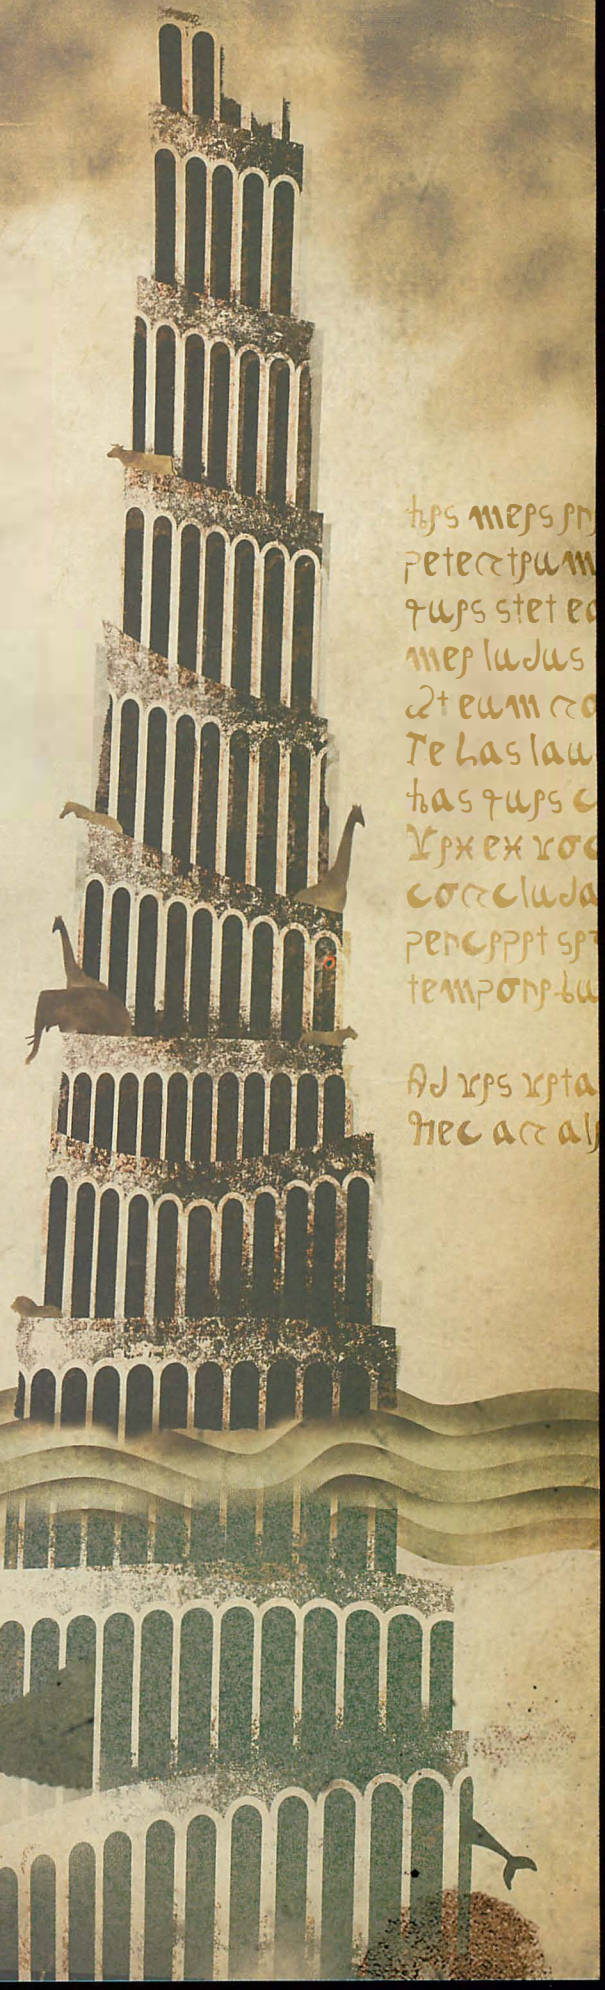 his meis pri
petentium
quis stet ea
mei ludus
At eum no
Te has lau
has quis c
Vix ex voc
concluda
percipit
temporibu

Ad vis vita
Nec an ali